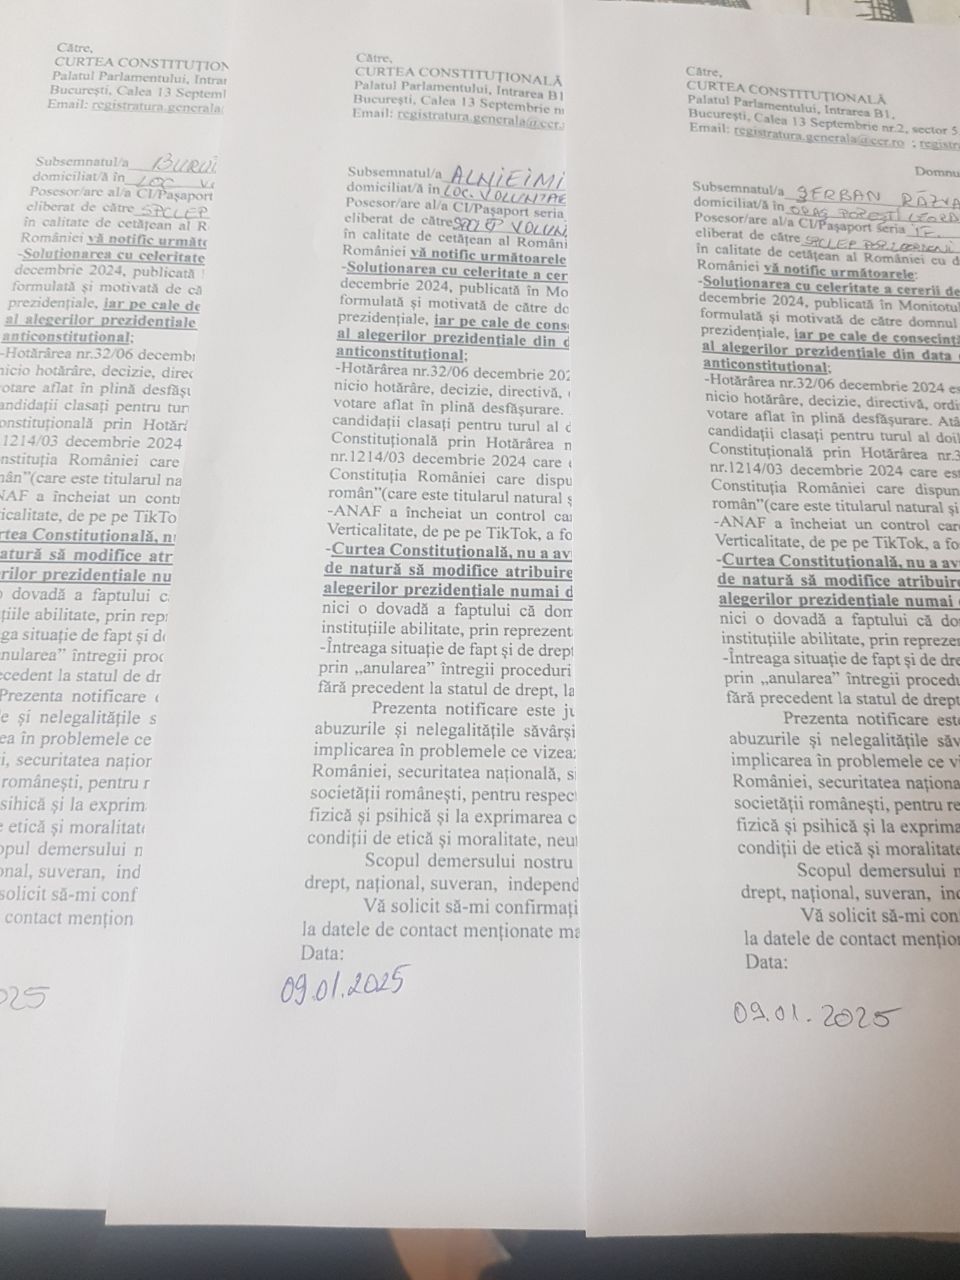 Către,
CURTEA CONSTITUȚION
Palatul Parlamentului, Intrar
București, Calea 13 Septeml
Email: registratura.generala
Subsemnatul/a
domiciliat/ă în LOC
Posesor/are al/a CI/Pașaport
eliberat de către SPCLEP
în calitate de cetățean al R
României vă notific următo
-Soluționarea cu celeritate
decembrie 2024, publicată
formulată și motivată de că
prezidențiale, iar pe cale de
al alegerilor prezidențiale
anticonstituțional;
-Hotărârea nr.32/06 decemb
nicio hotărâre, decizie, direc
votare aflat în plină desfășu
andidații clasați pentru tur
onstituțională prin Hotăr
.1214/03 decembrie 2024
nstituția României care
mân”(care este titularul na
NAF a încheiat un cont
icalitate, de pe pe TikTo
rtea Constituțională, n
atură să modifice atr
rilor prezidențiale nu
o dovadă a faptului c
țiile abilitate, prin repr
aga situație de fapt și de
anularea” întregii proc
ecedent la statul de dr
Prezenta notificare
le și nelegalitățile s
ea în problemele ce
i, securitatea națior
românești, pentru r
sihică și la exprim
e etică și moralitate
opul demersului n
onal, suveran, ind
solicit să-mi conf
contact mențion
025
Către,
CURTEA CONSTITUȚIONALĂ
Palatul Parlamentului, Intrarea B1
București, Calea 13 Septembrie n
Email: registratura.generala@ccr.
Subsemnatul/a ALNIEIMI
domiciliat/ă în LOC. VOLUNTAR
Posesor/are al/a CI/Pașaport seria
eliberat de către VOLUN
în calitate de cetățean al Români
României vă notific următoarele
-Soluționarea cu celeritate a cer
decembrie 2024, publicată în Mo
formulată și motivată de către do
prezidențiale, iar pe cale de cons
al alegerilor prezidențiale din d
anticonstituțional;
-Hotărârea nr.32/06 decembrie 202
nicio hotărâre, decizie, directivă,
votare aflat în plină desfășurare.
candidații clasați pentru turul al d
Constituțională prin Hotărârea n
nr.1214/03 decembrie 2024 care
Constituția României care dispu
român”(care este titularul natural ș
-ANAF a încheiat un control ca
Verticalitate, de pe pe TikTok, a fo
-Curtea Constituțională, nu a av
de natură să modifice atribuire
alegerilor prezidențiale numai d
nici o dovadă a faptului că dom
instituțiile abilitate, prin reprezent
-Întreaga situație de fapt și de drept
prin „anularea” întregii proceduri
fără precedent la statul de drept, la
Prezenta notificare este ju
abuzurile și nelegalitățile săvârși
implicarea în problemele ce vizea
României, securitatea națională, s
societății românești, pentru respec
fizică și psihică și la exprimarea c
condiții de etică și moralitate, neu
Scopul demersului nostru
drept, național, suveran, independ
Vă solicit să-mi confirmați
la datele de contact menționate ma
Data:
09.01.2025
Către,
CURTEA CONSTITUȚIONALĂ
Palatul Parlamentului, Intrarea B1,
București, Calea 13 Septembrie nr.2, sector 5,
Email: registratura.generala@ccr.ro ; registra
Domnu
Subsemnatul/a ȘERBAN RĂZVA
domiciliat/ă în ORAȘ POPEȘTI LEORD
Posesor/are al/a CI/Pașaport seria IF.
eliberat de către SPCLEP
în calitate de cetățean al României cu d
României vă notific următoarele:
-Soluționarea cu celeritate a cererii de
decembrie 2024, publicată în Monitorul
formulată și motivată de către domnul
prezidențiale, iar pe cale de consecinț
al alegerilor prezidențiale din data
anticonstituțional;
-Hotărârea nr.32/06 decembrie 2024 es
nicio hotărâre, decizie, directivă, ordi
votare aflat în plină desfășurare. Atâ
candidații clasați pentru turul al doil
Constituțională prin Hotărârea nr.3
nr.1214/03 decembrie 2024 care est
Constituția României care dispun
român”(care este titularul natural și
-ANAF a încheiat un control care
Verticalitate, de pe pe TikTok, a fo
-Curtea Constituțională, nu a av
de natură să modifice atribuire
alegerilor prezidențiale numai
nici o dovadă a faptului că do
instituțiile abilitate, prin reprezen
-Întreaga situație de fapt și de dre
prin „anularea” întregii procedu
fără precedent la statul de drept
Prezenta notificare este
abuzurile și nelegalitățile săv
implicarea în problemele ce v
României, securitatea naționa
societății românești, pentru re
fizică și psihică și la exprima
condiții de etică și moralitate
Scopul demersului n
drept, național, suveran, ind
Vă solicit să-mi con
la datele de contact mențio
Data:
09.01.2025